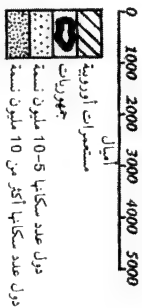 0 1000 2000 3000 4000 5000
أميال
مستعمرات أوروبية
جمهوريات
دول عدد سكانها 5-10 مليون نسمة
دول عدد سكانها أكثر من 10 مليون نسمة